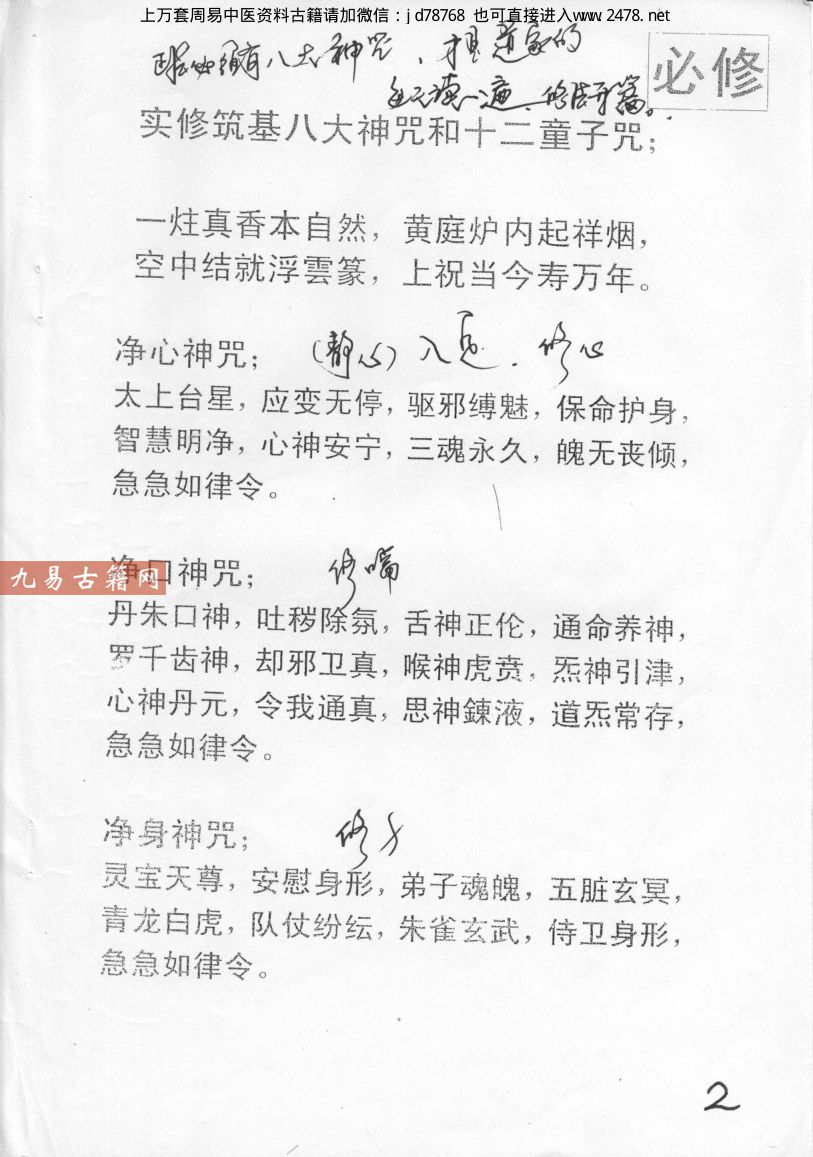 上万套周易中医资料古籍请加微信：jd78768 也可直接进入www.2478.net
须有八大神咒，才是道家的
必修
每天读一遍，
实修筑基八大神咒和十二童子咒；
一炷真香本自然，黄庭炉内起祥烟，
空中结就浮雲篆，上祝当今寿万年。
净心神咒； （静心）入 ，修心
太上台星，应变无停，驱邪缚魅，保命护身，
智慧明净，心神安宁，三魂永久，魄无丧倾，
急急如律令。
九易古籍网
净口神咒； 修嘴
丹朱口神，吐秽除氛，舌神正伦，通命养神，
罗千齿神，却邪卫真，喉神虎贲，炁神引津，
心神丹元，令我通真，思神鍊液，道炁常存，
急急如律令。
净身神咒； 修身
灵宝天尊，安慰身形，弟子魂魄，五脏玄冥，
青龙白虎，队仗纷纭，朱雀玄武，侍卫身形，
急急如律令。
2